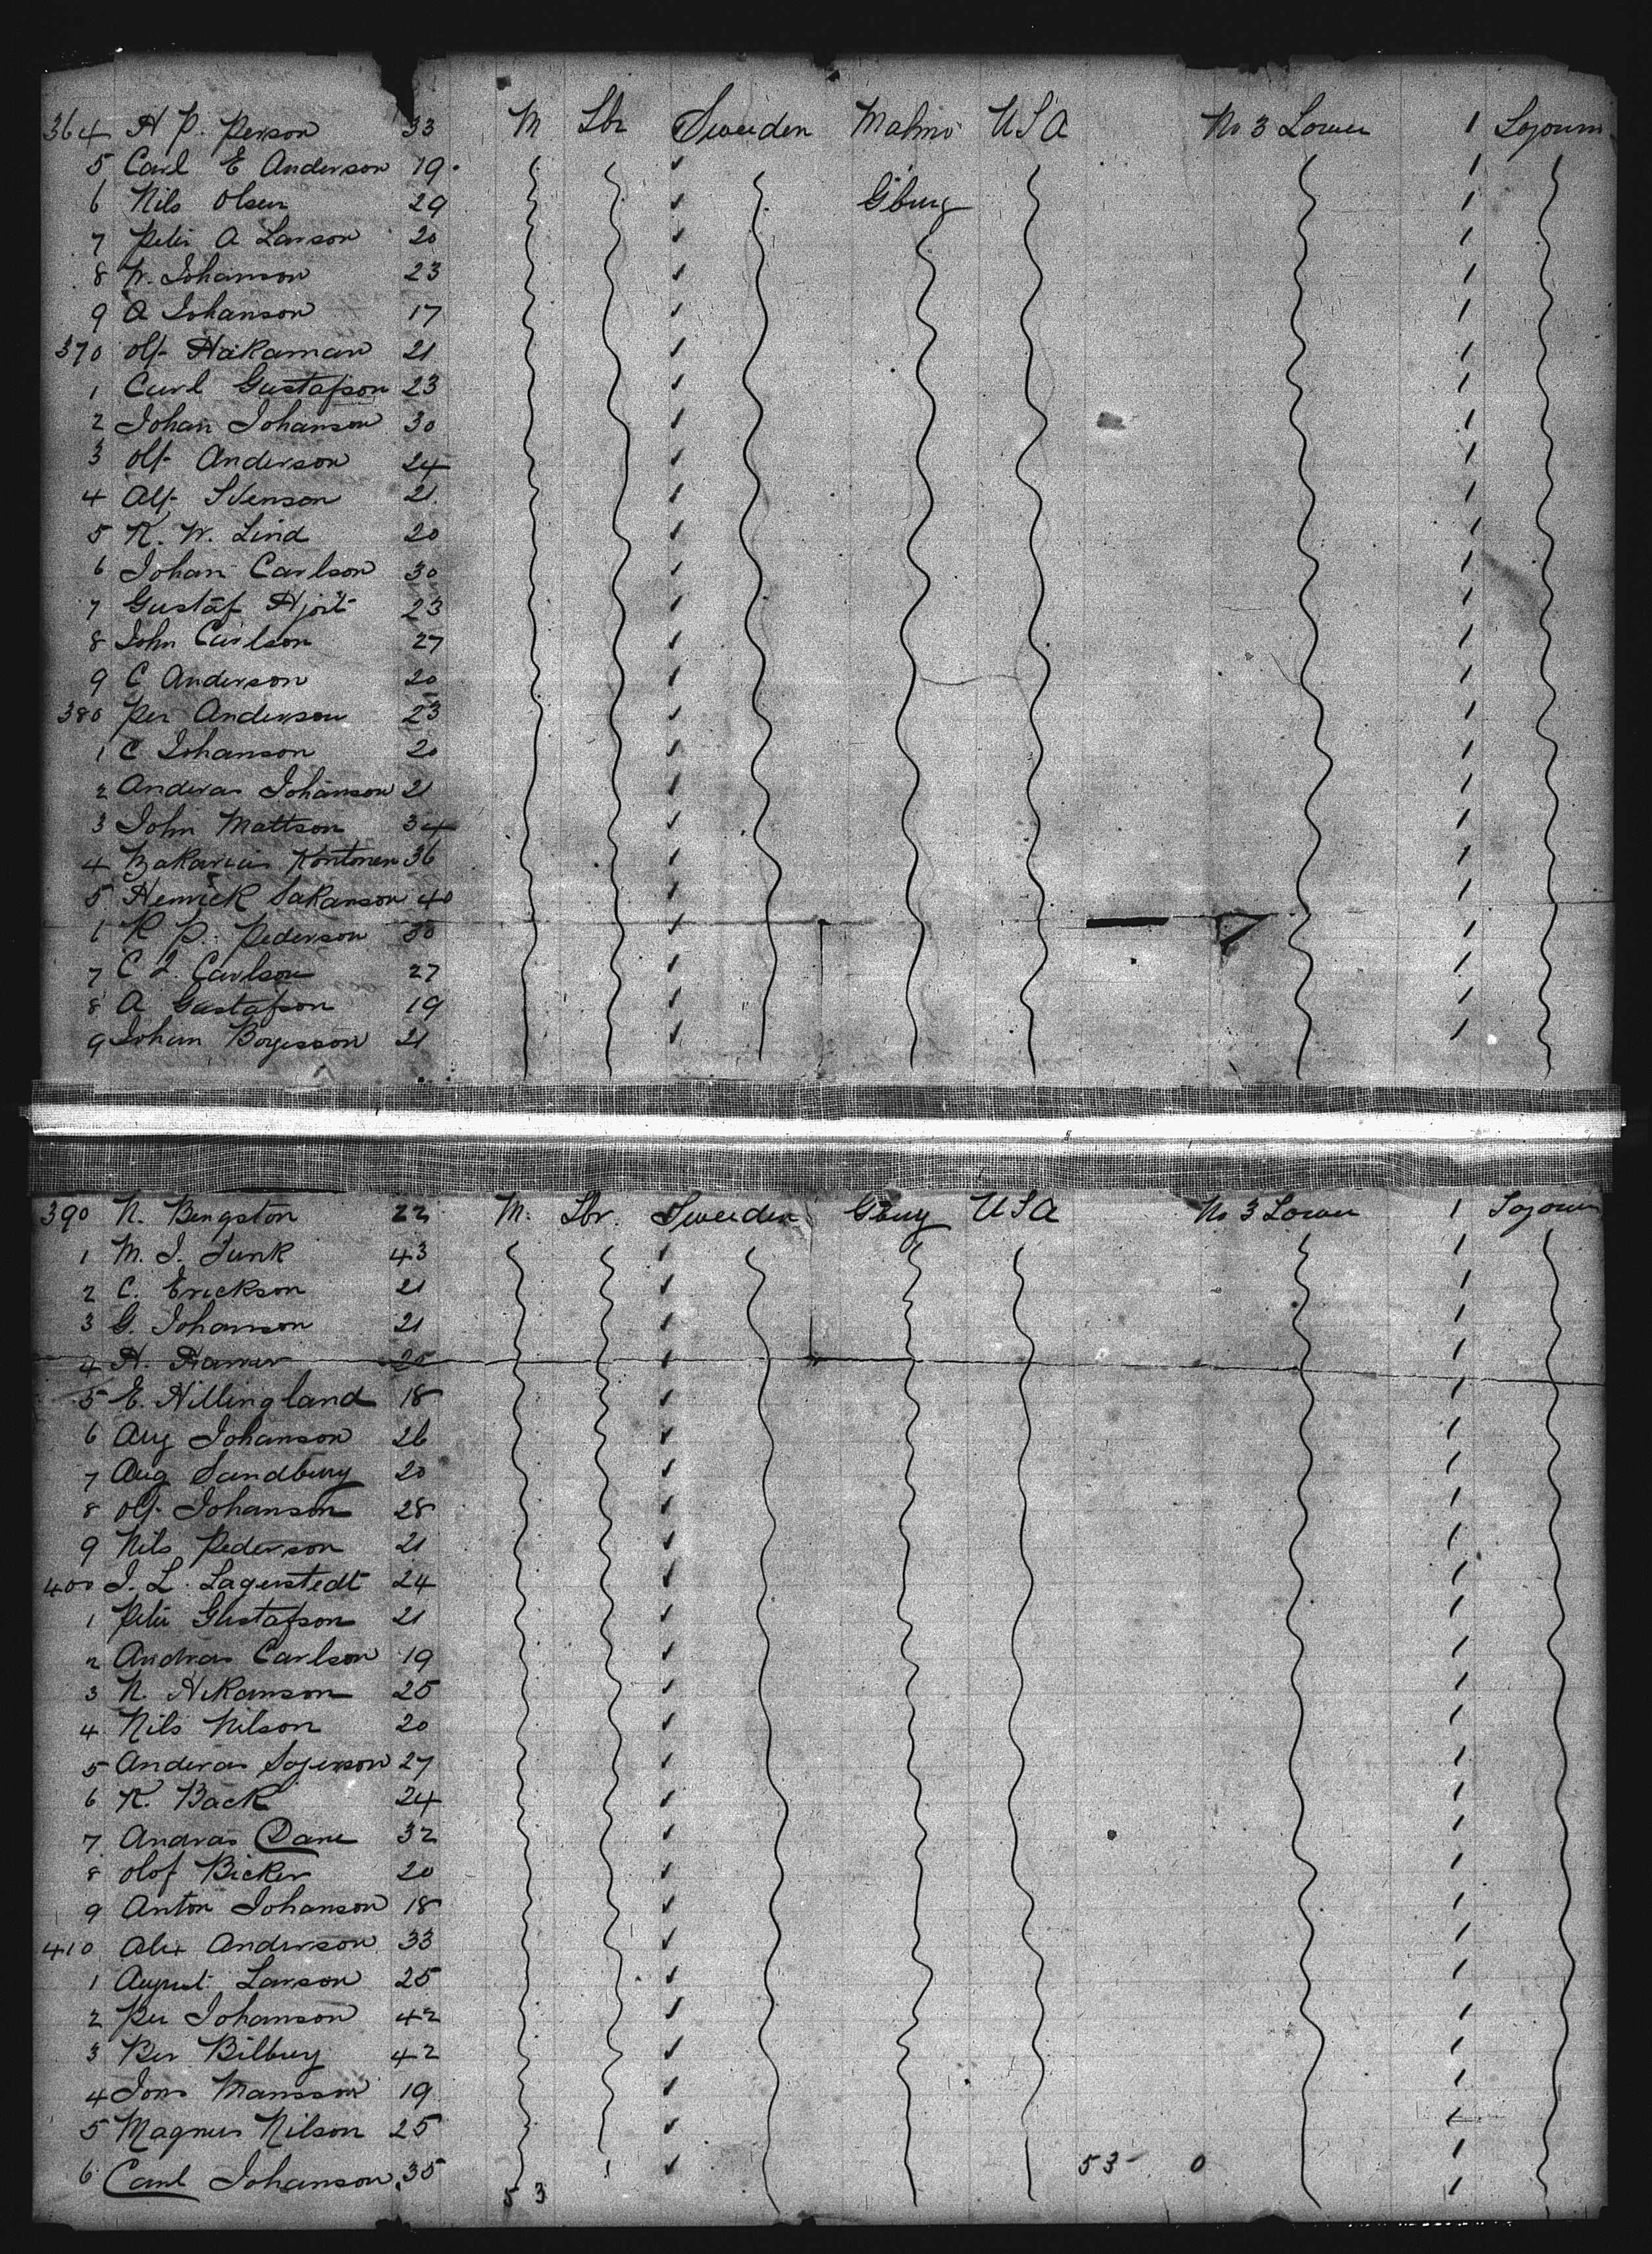 364 H P. Person 33 M Lbr Sweden Malmo USA No 3 Lower 1 Sojourn
5 Carl E Anderson 19 1
6 Nils Olsen 29 Gburg 1
7 Peter A Larson 20 1
8 W. Johanson 23 1
9 A Johanson 17 1
370 Olf Hakaman 21 1
1 Carl Gustafson 23 1
2 Johan Johanson 30 1
3 Olf Anderson 24 1
4 Alf Svenson 21 1
5 K. W. Lind 20 1
6 Johan Carlson 30 1
7 Gustaf Hjort 23 1
8 John Carlson 27 1
9 C Anderson 20 1
380 Per Anderson 23 1
1 C Johanson 20 1
2 Anderas Johanson 21 1
3 John Mattson 34 1
4 Zakarius Kontonen 36 1
5 Henrick Sakanson 40 1
6 K P. Pederson 30 1
7 C J. Carlson 27 1
8 A Gustafson 19 1
9 Johan Borgesson 21 1
390 N. Bengston 22 M. Lbr. Sweden Gburg USA No 3 Lower 1 Sojourn
1 M. J. Junk 43 1
2 C. Erickson 21 1
3 G. Johanson 21 1
4 H. 25 1
5 E. Hillingland 18 1
6 Aug Johanson 26 1
7 Aug Sandburg 20 1
8 Olf Johanson 28 1
9 Nils Pederson 21 1
400 J. L. Lagerstedt 24 1
1 Peter Gustafson 21 1
2 Andras Carlson 19 1
3 N. Hekanson 25 1
4 Nils Nilson 20 1
5 Anderas Sogerson 27 1
6 K. Back 24 1
7 Andras Dane 32 1
8 Olof Bicker 20 1
9 Anton Johanson 18 1
410 Alex Anderson 33 1
1 August Larson 25 1
2 Per Johanson 42 1
3 Per Bilburg 42 1
4 Jons Mansson 19 1
5 Magnus Nilson 25 1
6 Carl Johanson 35 53 0 1
53